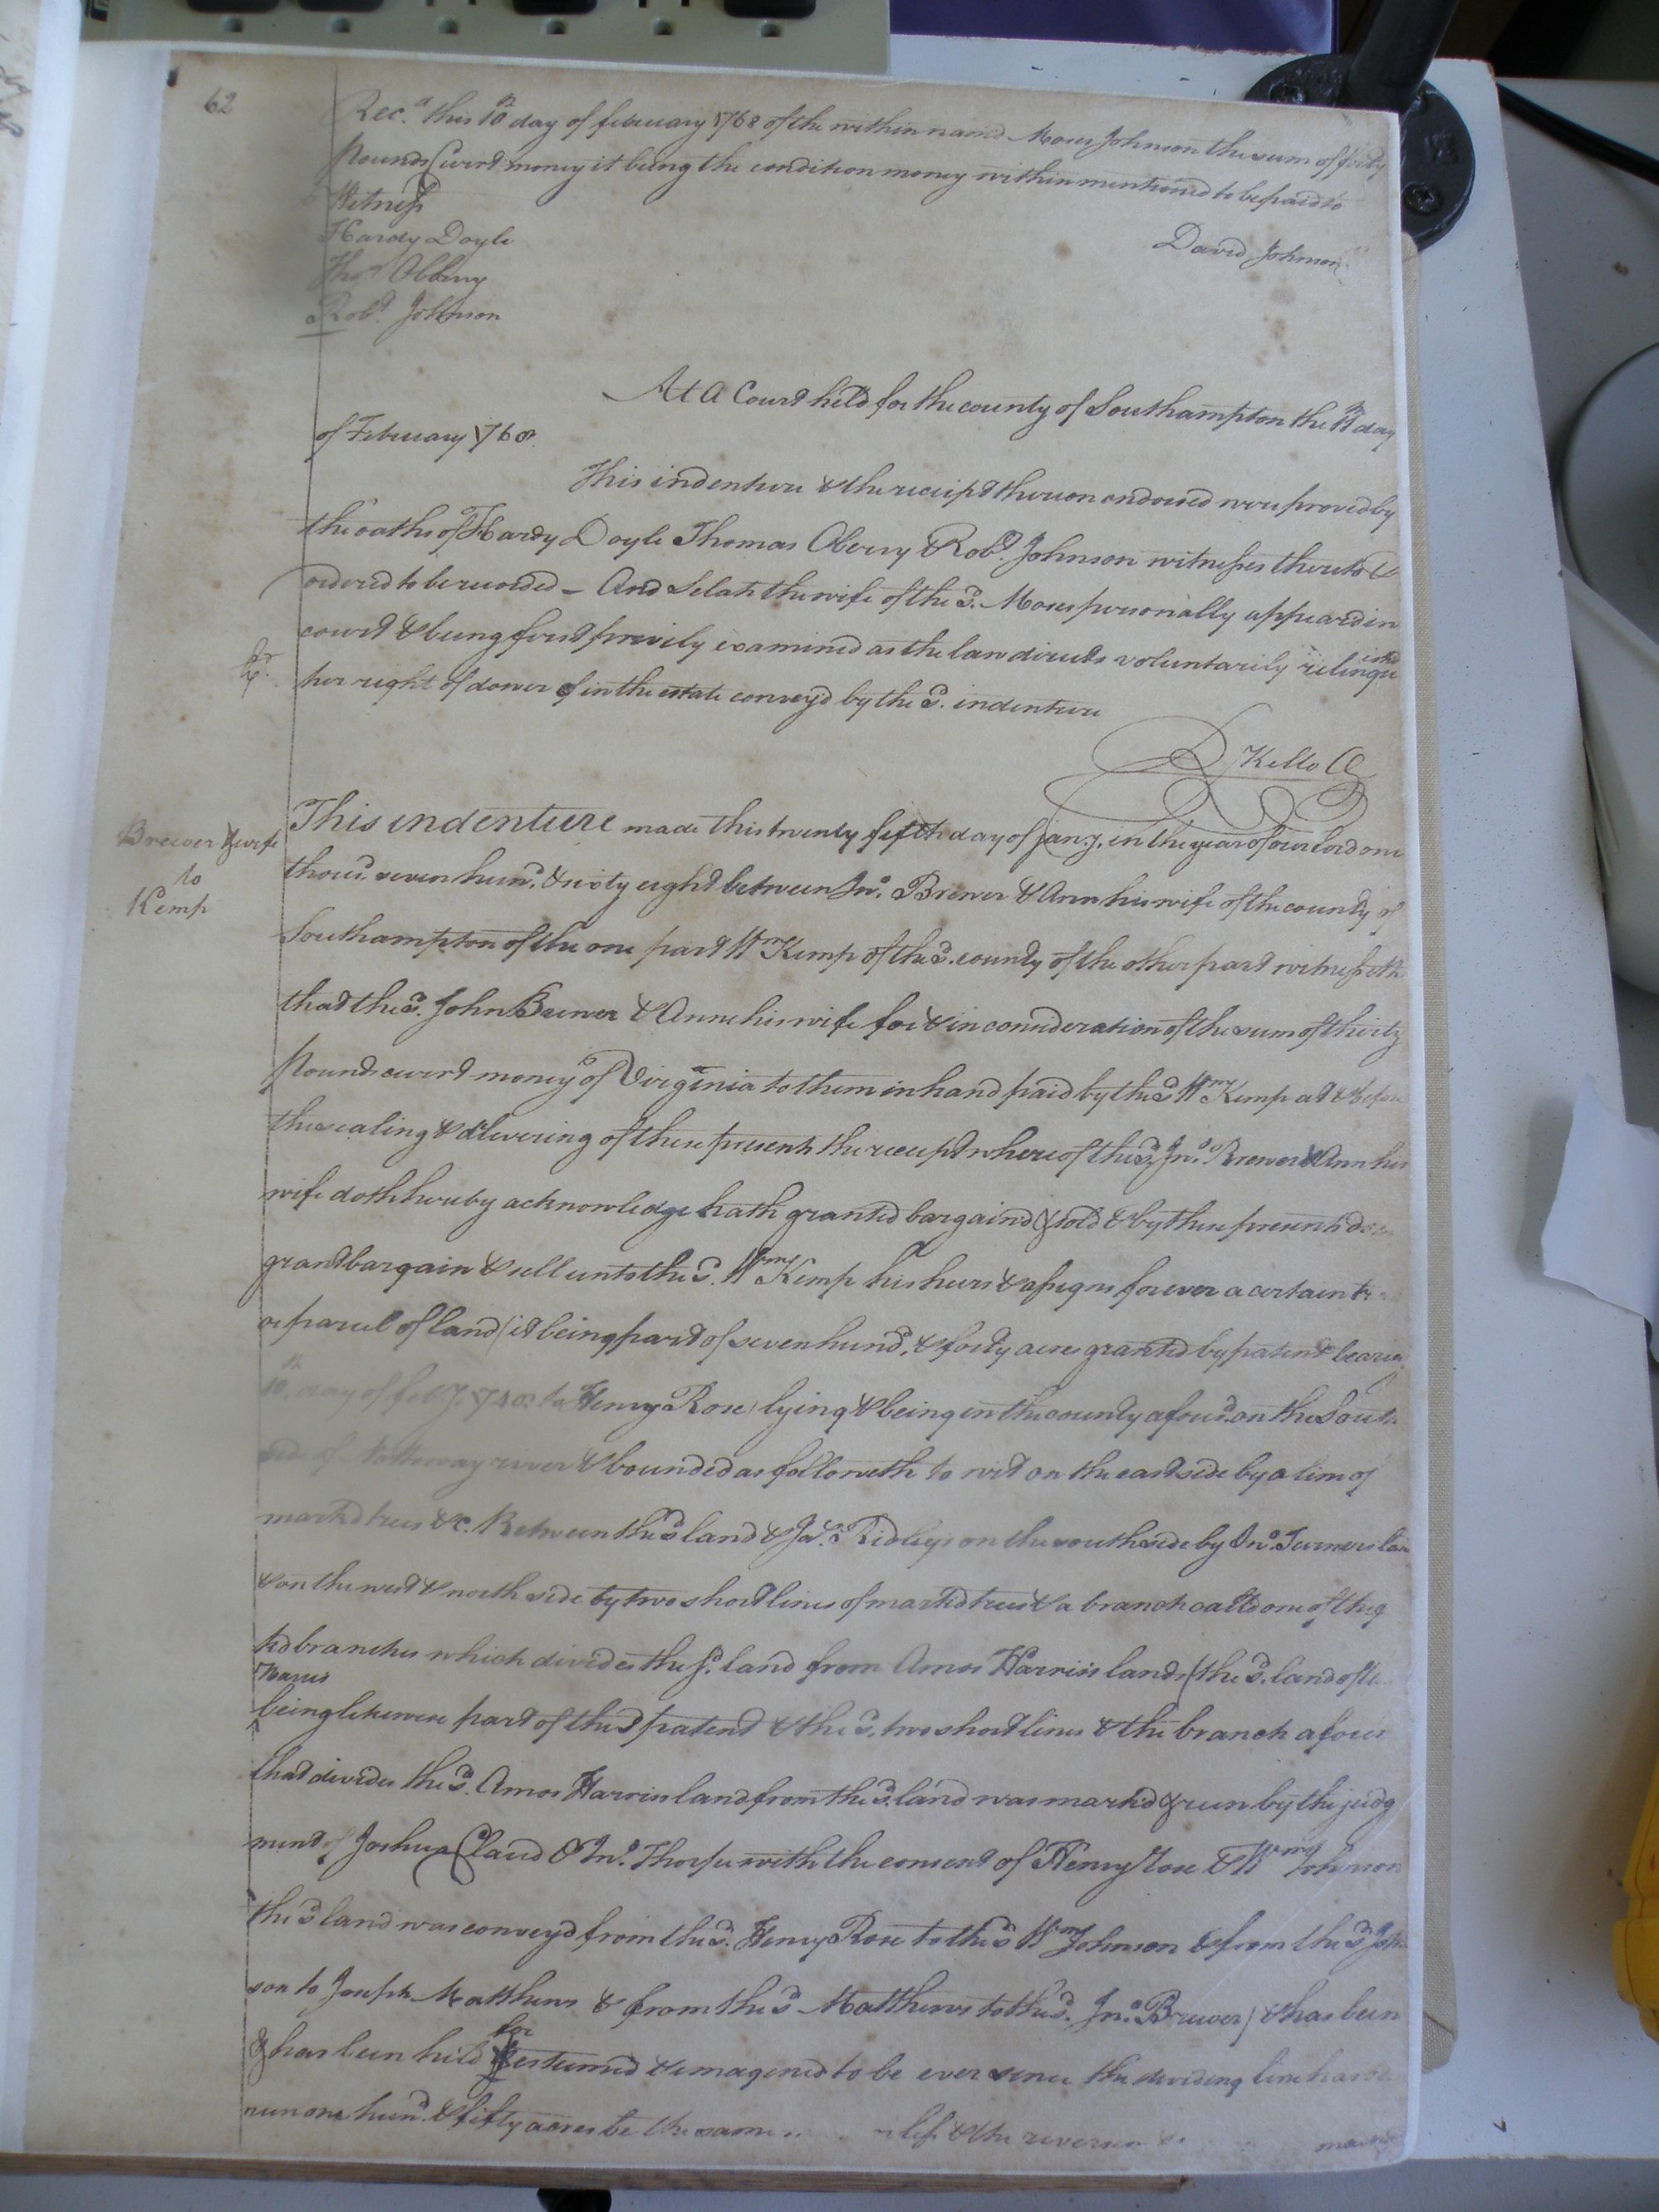 62
Rec.d this 10th day of february 1768 of the within named Moses Johnson the sum of forty
Pounds Curr.t money it being the condition money within mentioned to be paid to
Witness
David Johnson
Hardy Doyle
Tho.s Obbery
Rob.t Johnson
At a Court held for the county of Southampton the 11th day
of February 1768.
This indenture & the receipt thereon endorsed were proved by
the oaths of Hardy Doyle Thomas Oberry & Rob.t Johnson witnesses thereto &
ordered to be recorded – And Selah the wife of the s.d Moses personally appeard in
court & being first previly examined as the law directs voluntarily relinquished
her right of dower of in the estate convey'd by the s.d indenture
R Kello Cl
Brewer & wife
to
Kemp
This indenture made this twenty fifth day of jan.y in the year of our lord one
thous.d seven hun.d & sixty eight between Jn.o Brewer & Ann his wife of the county of
Southampton of the one part W.m Kemp of the s.d county of the other part witnesseth
that the s.d John Brewer & Anne his wife for & in consideration of the sum of thirty
Pounds curr.t money of Virginia to them in hand paid by the s.d W.m Kemp at & before
the sealing & delivering of these presents the receipt whereof the s.d Jn.o Brewer & Ann his
wife doth hereby acknowledge hath granted bargaind & sold & by these presents do
grant bargain & sell unto the s.d W.m Kemp his heirs & assigns forever a certain
or parcel of land (it being part of seven hund.d & forty acres granted by patent bearing
10th day of feb.y to Henry Rose) lying & being in the county afores.d on the South
side of Nottoway river & bounded as followeth to wit on the east side by a line of
markd trees &c. Between the s.d land & Ja.s Ridleys on the south side by Jn.o Turners
& on the west & north side by two short lines of markd trees & a branch calld one of the
branches which divides the s.d land from Amos Harriss land (the s.d land of
Harris
being likewise part of the s.d patent & the s.d two short lines & the branch afores
that divides the s.d Amos Harris land from the s.d land was markd & run by the judg
ment of Joshua Claud & Jn.o Thorpe with the consent of Henry Rose & W.m Johnson
the s.d land was convey'd from the s.d Henry Rose to the s.d W.m Johnson & from the s.d John
son to Joseph Matthews & from the s.d Matthews to the s.d Jn.o Brewer) & has been
& has been held for estemed & imagined to be ever since the deviding line has
run one hund.d & fifty acres be the same less & the reversion